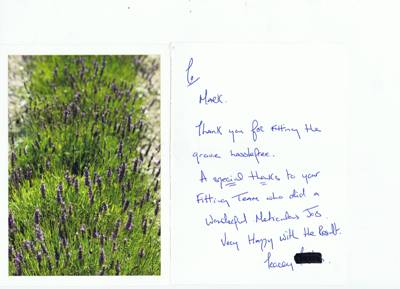 To
Mark.
Thank you for fitting the
grave woodsfree.
A special thanks to your
Fitting Team who did a
Wonderful Meticulous Job.
Very Happy with the Result.
Tracey